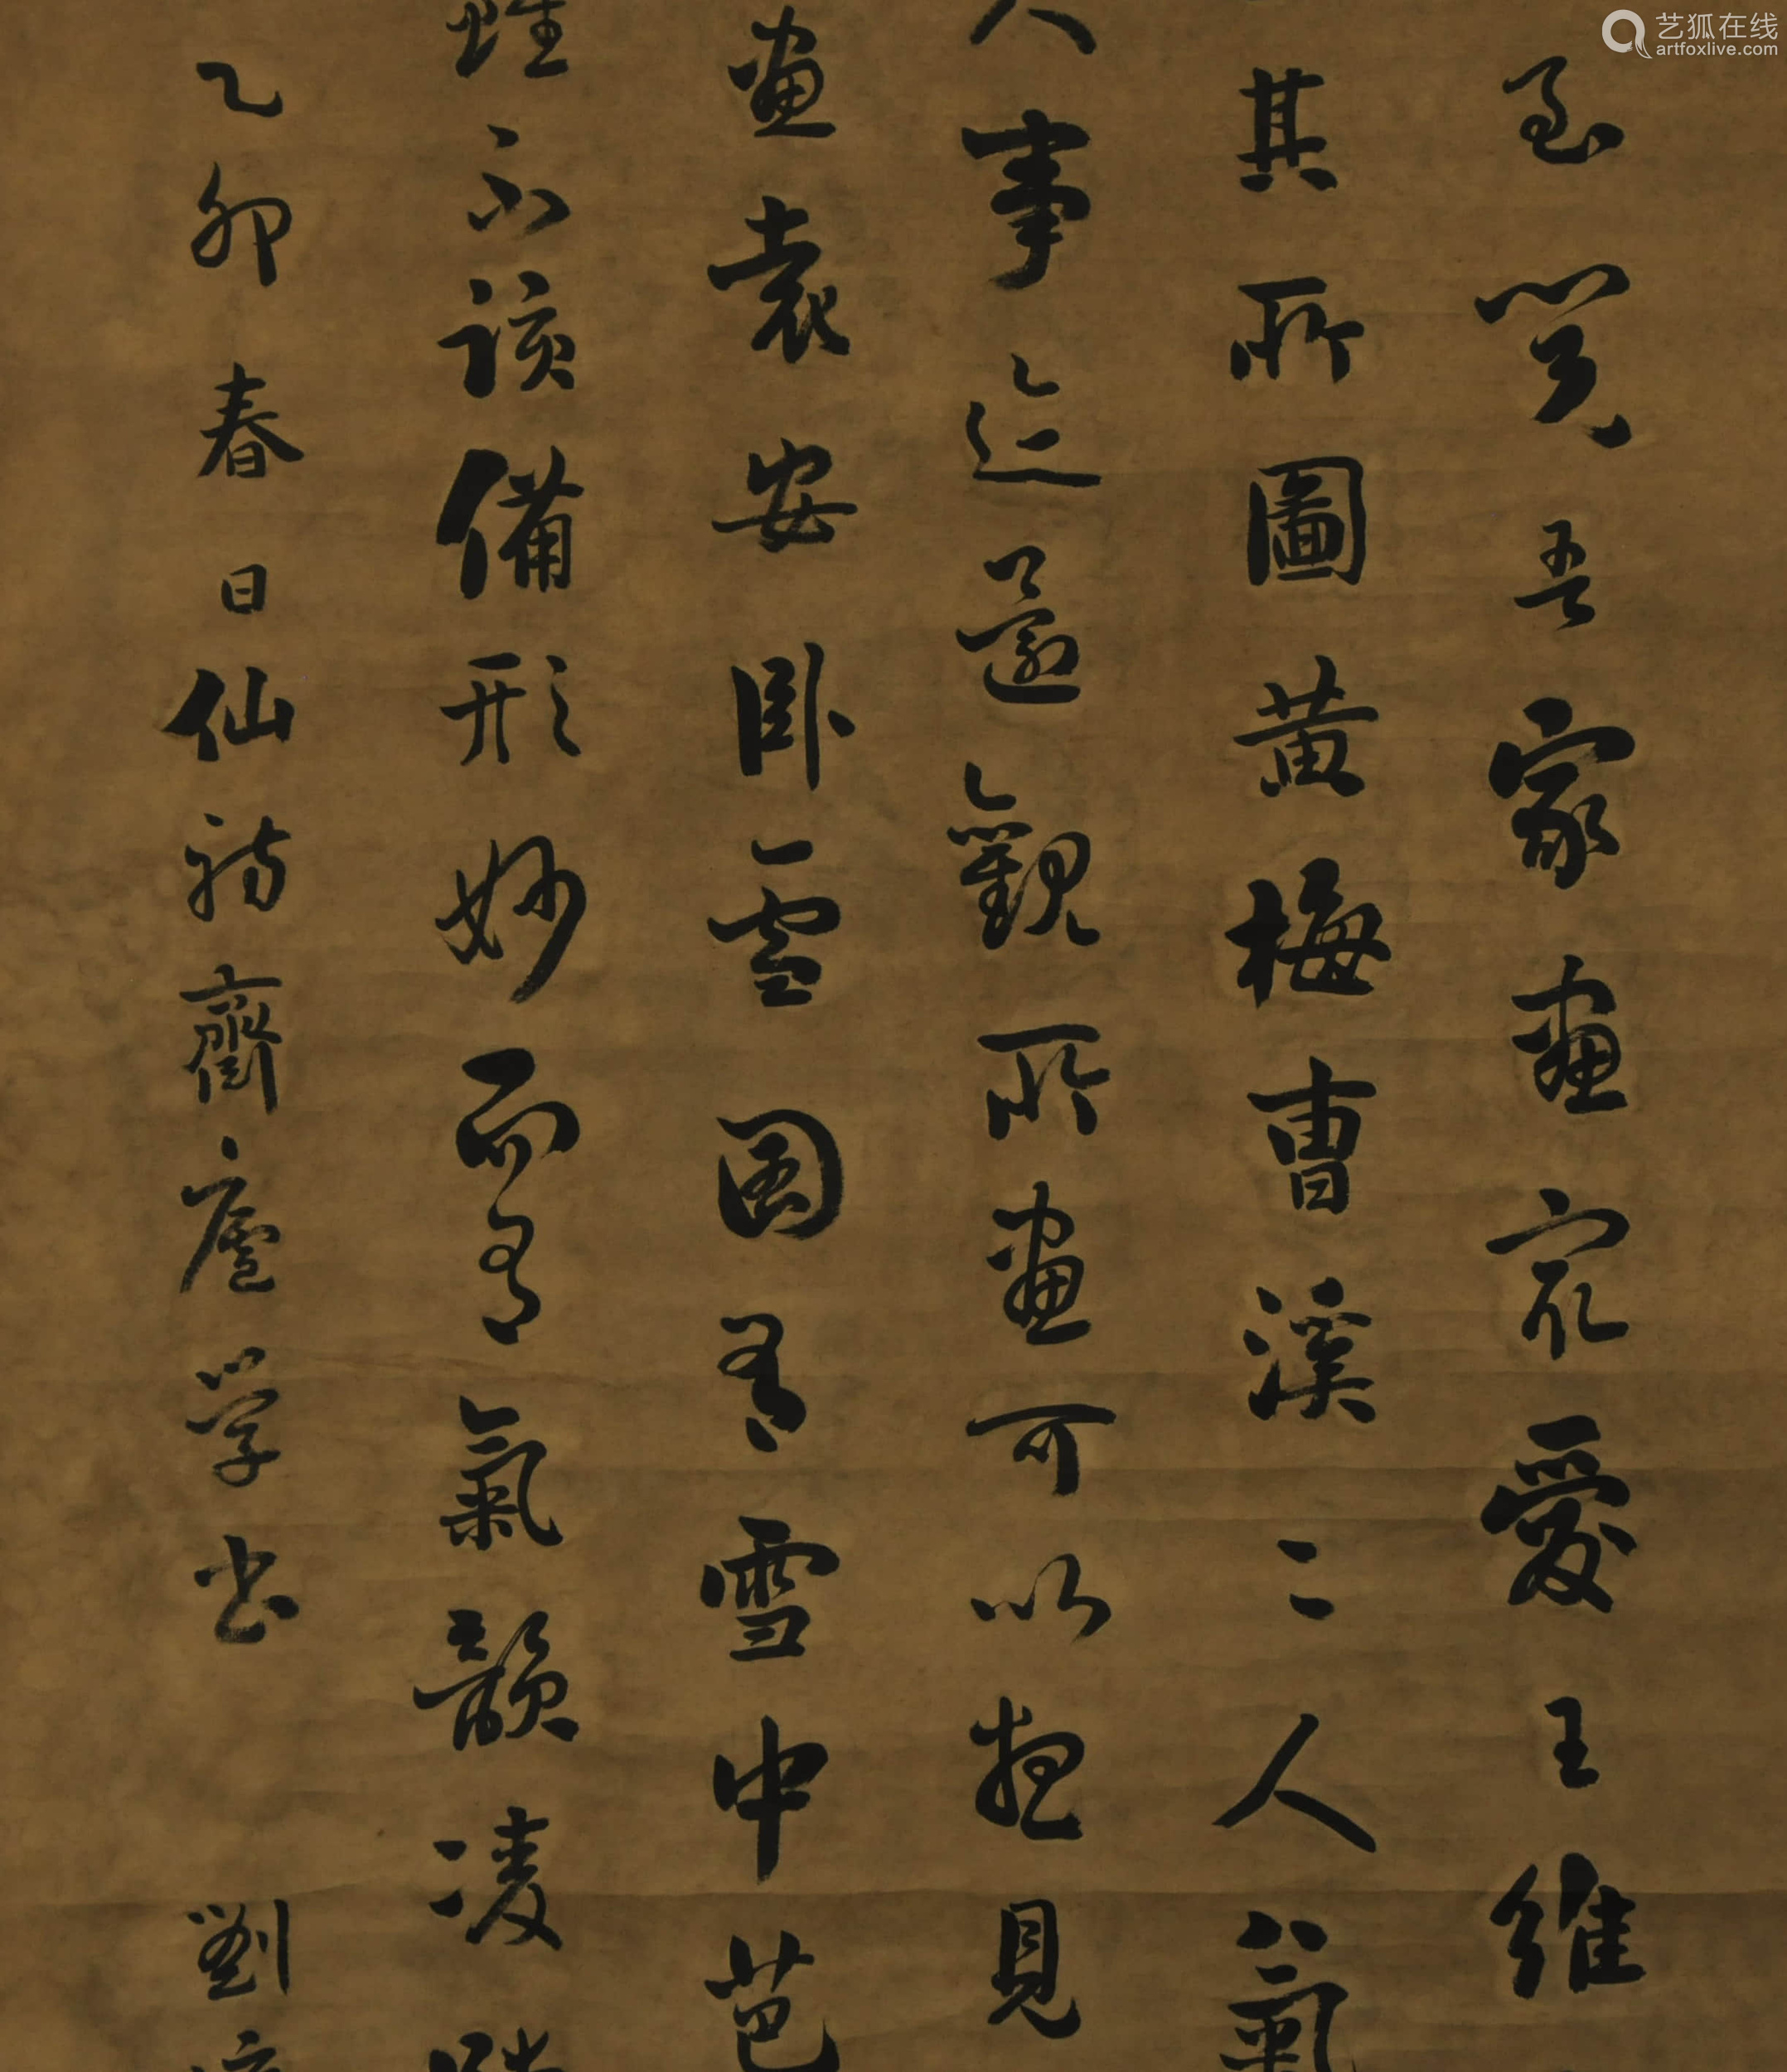 至閱吾家畫最愛王維
其所圖黃梅曹溪二人氣
人事迹還觀所畫可以想見
畫袁安卧雪圖有雪中芭
雖不該備形妙而有氣韻凌跨
乙卯春日仙齋廬學書 劉
艺狐在线
artfoxlive.com